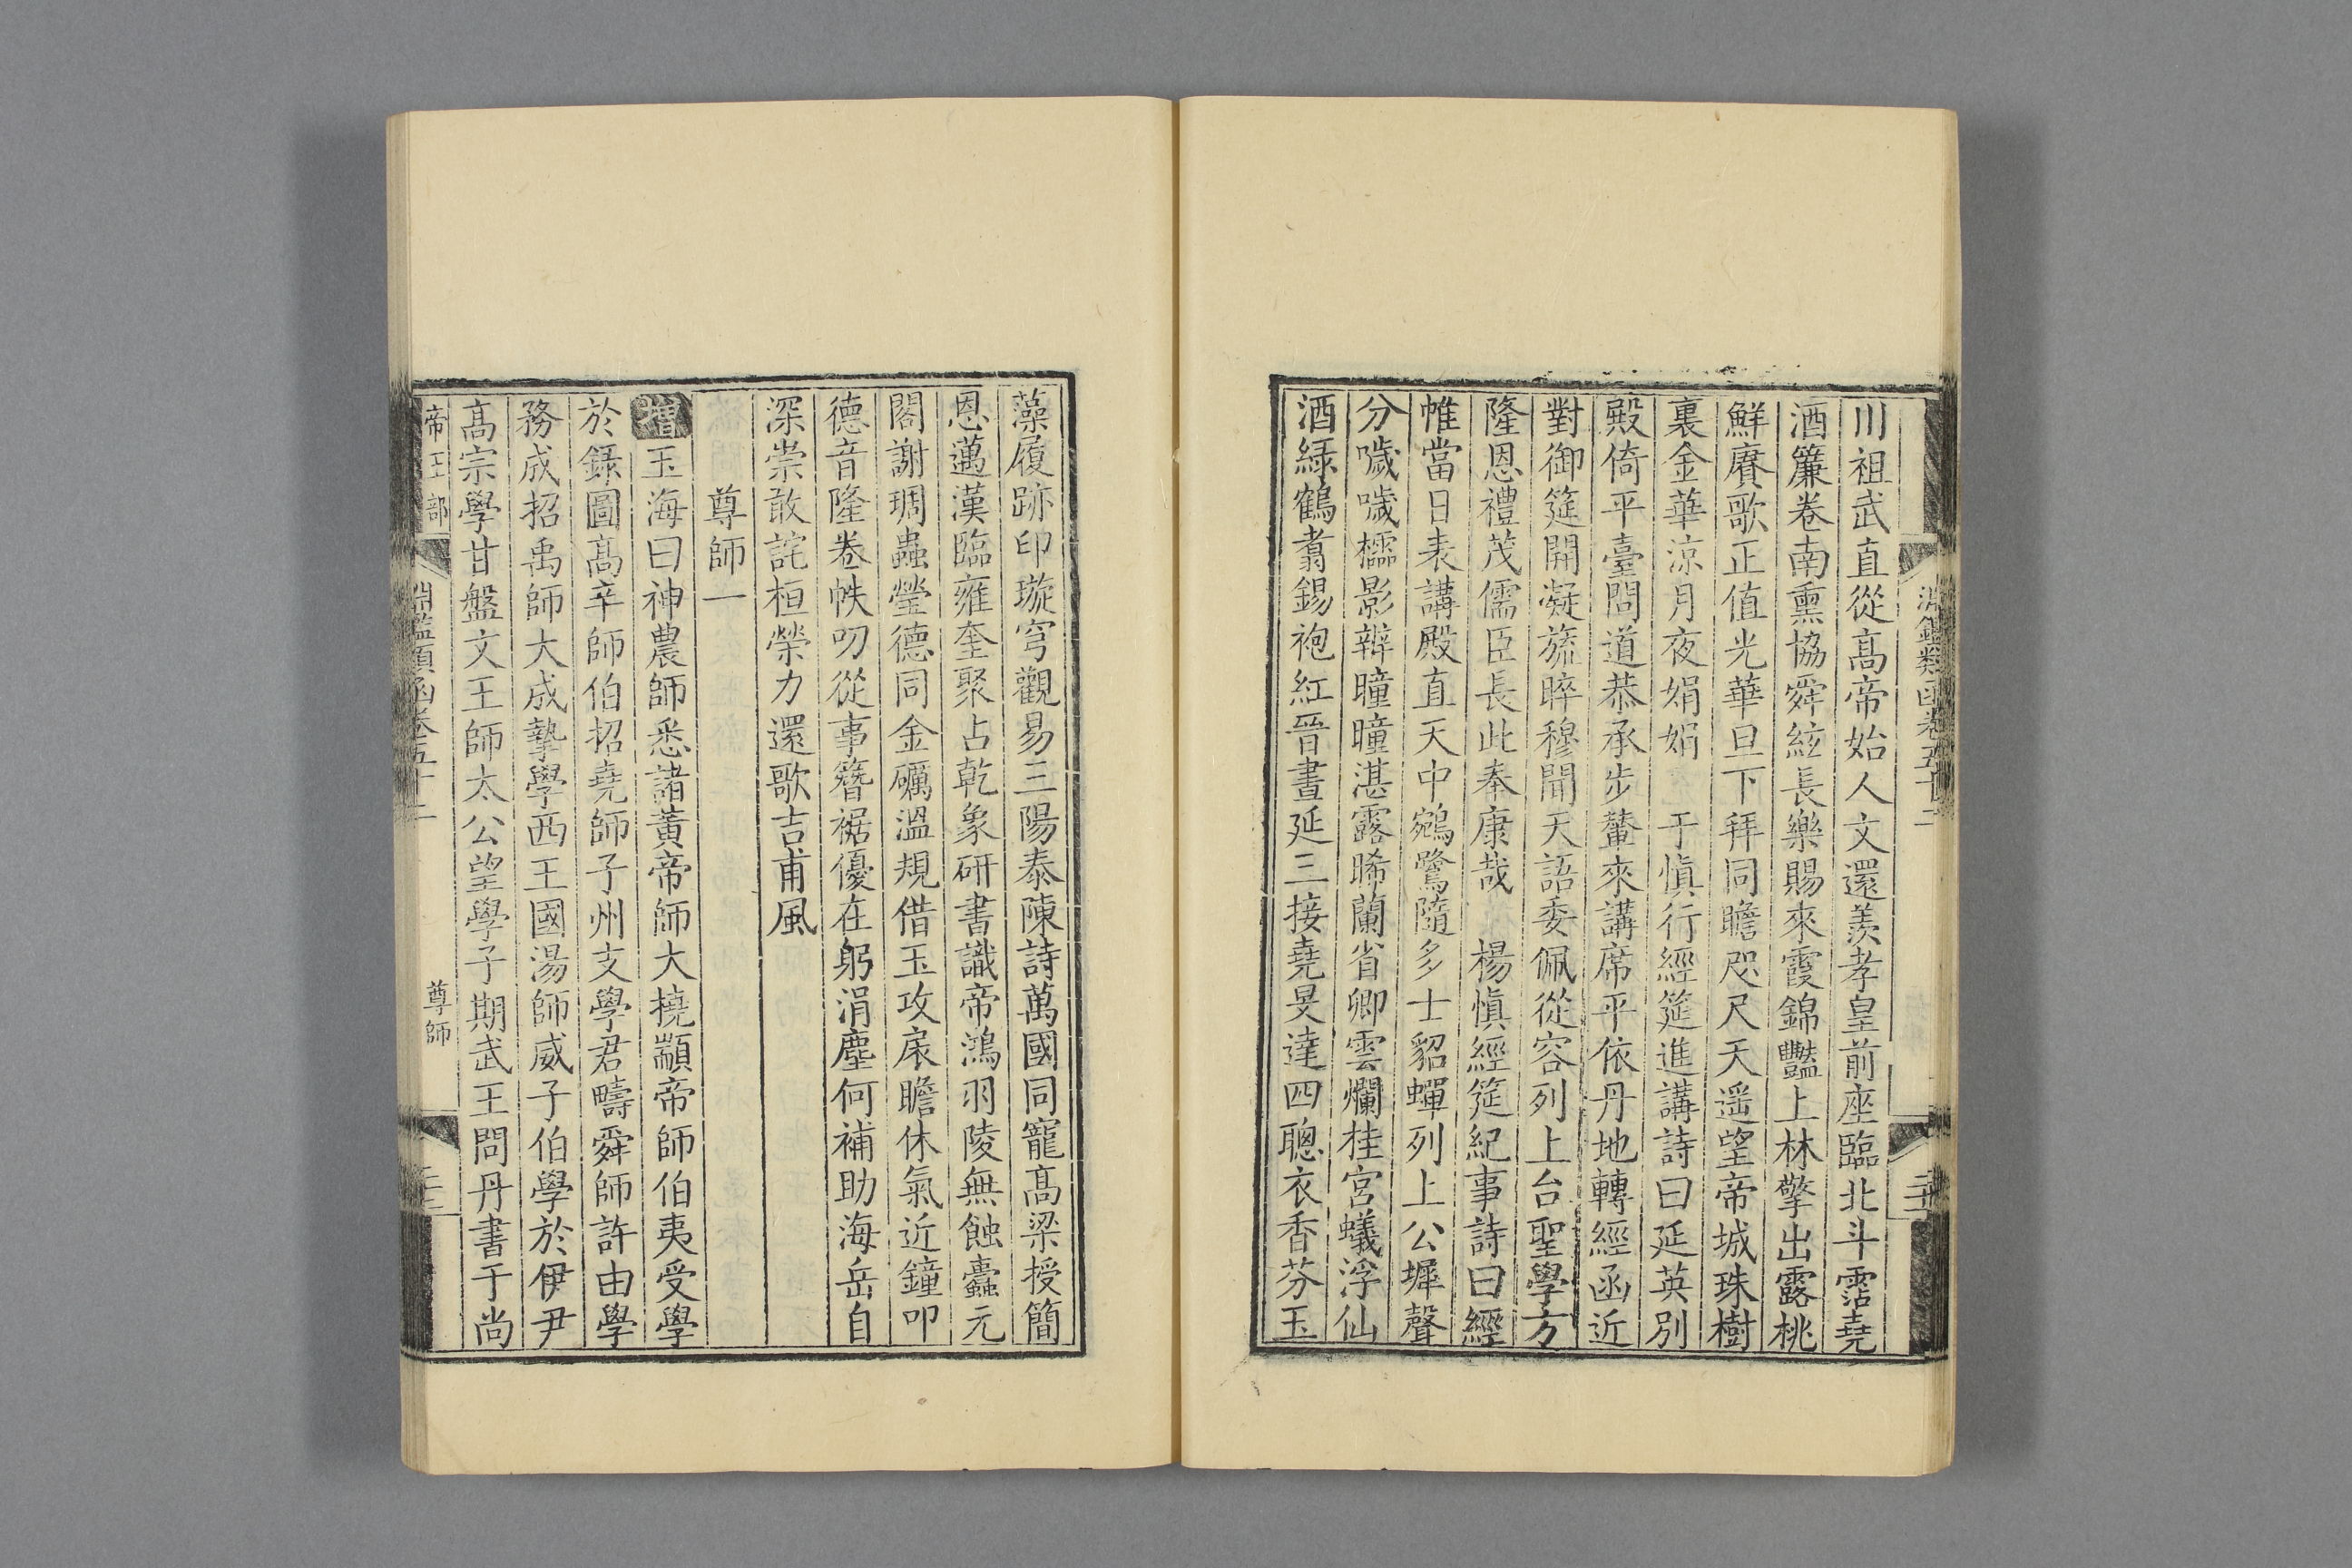 淵鑑類函卷五十二
川祖武直從高帝始人文還羨孝皇前座臨北斗霑堯
酒簾卷南熏協舜絃長樂賜來霞錦豔上林擎出露桃
鮮賡歌正值光華旦下拜同瞻咫尺天遥望帝城珠樹
裏金華涼月夜娟娟　于慎行經筵進講詩曰延英別
殿倚平臺問道恭承步輦來講席平依丹地轉經函近
對御筵開凝旒睟穆聞天語委佩從容列上台聖學方
隆恩禮茂儒臣長此奉康哉　楊慎經筵紀事詩曰經
帷當日表講殿直天中鵷鷺隨多士貂蟬列上公墀聲
分噦噦櫺影辨曈曈湛露晞蘭省卿雲爛桂宮蟻浮仙
酒綠鶴翥錫袍紅晉晝延三接堯旻達四聰衣香芬玉
藻履跡印璇穹觀易三陽泰陳詩萬國同寵高梁授簡
恩邁漢臨雍奎聚占乾象研書識帝鴻羽陵無蝕蠹元
閣謝琱蟲瑩德同金礪溫規借玉攻扆瞻休氣近鐘叩
德音隆卷帙叨從事簪裾優在躬涓塵何補助海岳自
深崇敢詫桓榮力還歌吉甫風
尊師一
增玉海曰神農師悉諸黃帝師大撓顓帝師伯夷受學
於錄圖高辛師伯招堯師子州支學君疇舜師許由學
務成招禹師大成摯學西王國湯師威子伯學於伊尹
高宗學甘盤文王師太公望學子期武王問丹書于尚
帝王部
淵鑑類函卷五十二
尊師